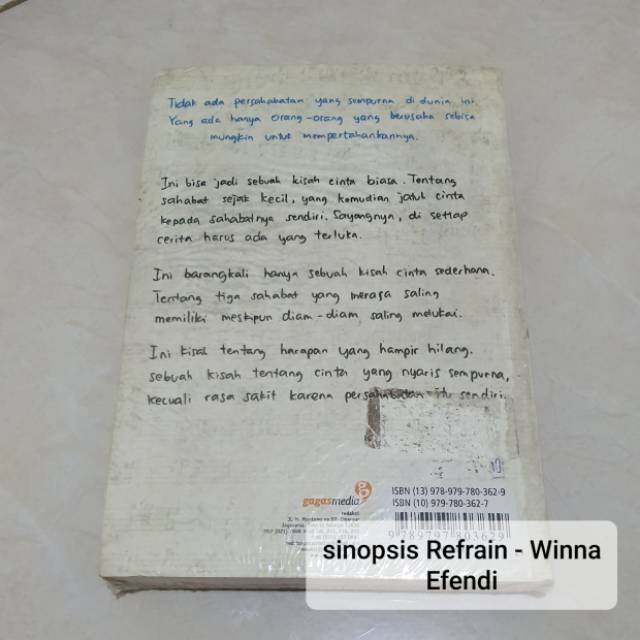 Tidak ada persahabatan yang sempurna di dunia ini.
Yang ada hanya orang-orang yang berusaha sebisa
mungkin untuk mempertahankannya.
Ini bisa jadi sebuah kisah cinta biasa. Tentang
sahabat sejak kecil, yang kemudian jatuh cinta
kepada sahabatnya sendiri. Sayangnya, di setiap
cerita harus ada yang terluka.
Ini barangkali hanya sebuah kisah cinta sederhana.
Tentang tiga sahabat yang merasa saling
memiliki meskipun diam-diam saling melukai.
Ini kisah tentang harapan yang hampir hilang.
sebuah kisah tentang cinta yang nyaris sempurna,
kecuali rasa sakit karena persahabatan itu sendiri.
gagasmedia
redaksi
ISBN (13) 978-979-780-362-9
ISBN (10) 979-780-362-7
9 789797 803629
sinopsis Refrain - Winna
Efendi